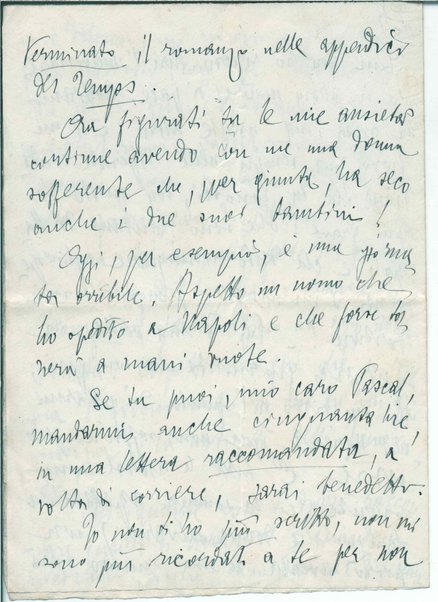 terminato il romanzo nelle appendici
del Temps.
Ora figurati tu le mie ansietà
continue avendo con me una donna
sofferente che, per giunta, ha seco
anche i due suoi bambini!
Oggi, per esempio, è una giorna
ta orribile. Aspetto un uomo che
ho spedito a Napoli e che forse tor
nerà a mani vuote.
Se tu puoi, mio caro Pascal,
mandarmi anche cinquanta lire,
in una lettera raccomandata, a
volta di corriere, sarai benedetto.
Io non ti ho più scritto, non mi
sono più ricordato a te per non